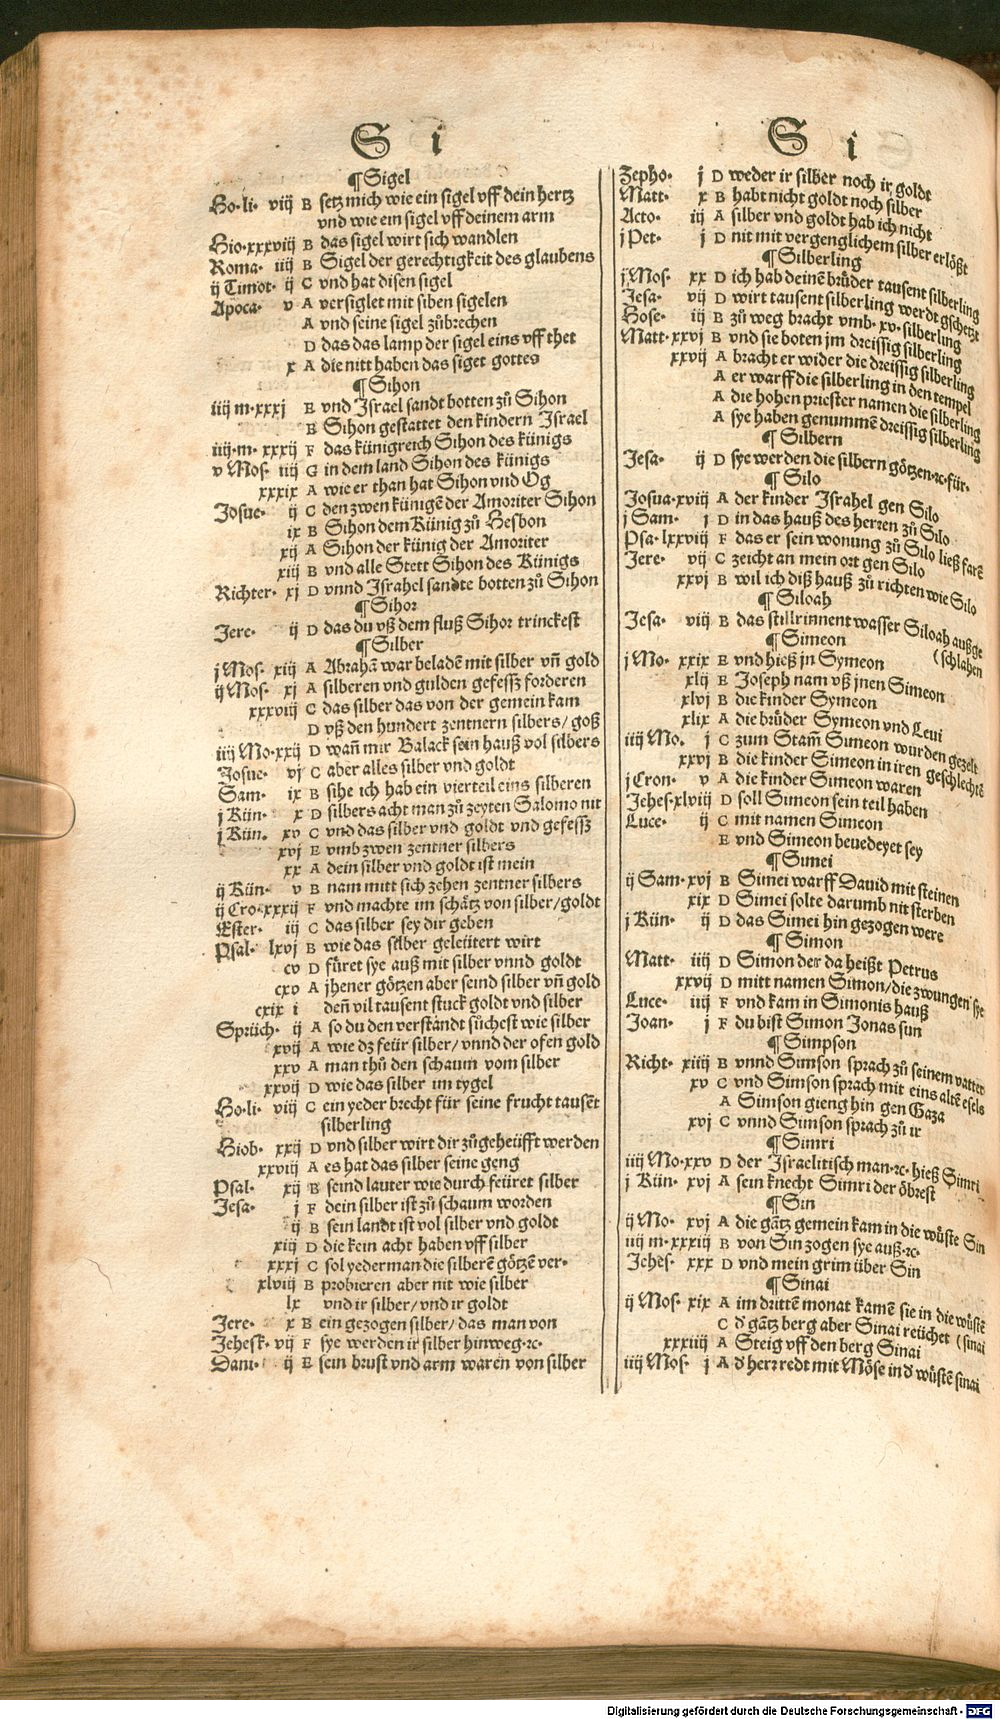 S i
¶Sigel
Ho·li· viij B setz mich wie ein sigel vff dein hertz
vnd wie ein sigel vff deinem arm
Hio·xxxviij B das sigel wirt sich wandlen
Roma· iiij B Sigel der gerechtigkeit des glaubens
ij Timot· ij C vnd hat disen sigel
Apoca· v A versiglet mit siben sigelen
A vnd seine sigel zůbrechen
D das das lamp der sigel eins vff thet
x A die nitt haben das siget gottes
¶Sihon
iiij m·xxxj E vnd Israel sandt botten zů Sihon
E Sihon gestattet den kindern Israel
iiij·m· xxxij F das künigreich Sihon des künigs
v Mos· iiij G in dem land Sihon des künigs
xxxix A wie er than hat Sihon vnd Og
Josue· ij C den zwen künigē der Amoriter Sihon
ix B Sihon dem Künig zů Hesbon
xij A Sihon der künig der Amoriter
xiij B vnd alle Stett Sihon des Künigs
Richter· xj D vnnd Israhel sandte botten zů Sihon
¶Sihor
Jere· ij D das du vß dem fluß Sihor trinckest
¶Silber
j Mos· xiij A Abrahā war beladē mit silber vñ gold
ij Mos· xj A silberen vnd gulden gefessz forderen
xxxviij C das silber das von der gemein kam
D vß den hundert zentnern silbers/ goß
iiij Mo·xxij D wañ mir Balack sein hauß vol silbers
Josue· vj C aber alles silber vnd goldt
Sam· ix B sihe ich hab ein vierteil eins silberen
j Kün· x D silbers acht man zů zeyten Salomo nit
j Kün· xv C vnd das silber vnd goldt vnd gefessz
xvj E vmb zwen zentner silbers
xx A dein silber vnd goldt ist mein
ij Kün· v B nam mitt sich zehen zentner silbers
ij Cro·xxxij F vnd machte im schätz von silber/goldt
Ester· iij C das silber sey dir geben
Psal· lxvj B wie das silber geleütert wirt
cv D fůret sye auß mit silber vnnd goldt
cxv A jhener götzen aber seind silber vñ gold
cxix i deñ vil tausent stuck goldt vnd silber
Sprüch· ij A so du den verständt sůchest wie silber
xvij A wie dz feür silber/ vnnd der ofen gold
xxv A man thů den schaum vom silber
xxvij D wie das silber im tygel
Ho·li· viij C ein yeder brecht für seine frucht tausēt
silberling
Hiob· xxij D vnd silber wirt dir zůgeheüfft werden
xxviij A es hat das silber seine geng
Psal· xij B seind lauter wie durch feüret silber
Jesa· j F dein silber ist zů schaum worden
ij B sein landt ist vol silber vnd goldt
xiij D die kein acht haben vff silber
xxxj C sol yederman die silberē götzē ver·
xlviij B probieren aber nit wie silber
lx vnd ir silber/ vnd ir goldt
Jere· x B ein gezogen silber/ das man von
Jehesk· vij F sye werden ir silber hinweg·ꝛc·
Dani· ij E sein brust vnd arm waren von silber
S i
Zepho· j D weder ir silber noch ir goldt
Matt· x B habt nicht goldt noch silber
Acto· iij A silber vnd goldt hab ich nicht
j Pet· j D nit mit vergenglichem silber erlößt
¶Silberling
j Mos· xx D ich hab deinē brůder tausent silberling
Jesa· vij D wirt tausent silberling werdt gschetzt
Hose· iij B zů weg bracht vmb· xv· silberling
Matt·xxvj B vnd sie boten jm dreissig silberling
xxvij A bracht er wider die dreissig silberling
A er warff die silberling in den tempel
A die hohen priester namen die silberling
A sye haben genummē dreissig silberling
¶Silbern
Jesa· ij D sye werden die silbern götzen·ꝛc·für·
¶Silo
Josua·xviij A der kinder Israhel gen Silo
j Sam· j D in das hauß des herren zů Silo
Psa·lxxviij F das er sein wonung zů Silo ließ farē
Jere· vij C zeicht an mein ort gen Silo
xxvj B wil ich diß hauß zů richten wie Silo
¶Siloah
Jesa· viij B das stillrinnent wasser Siloah außge
¶Simeon (schlahen
j Mo· xxix E vnd hieß jn Symeon
xlij E Joseph nam vß jnen Simeon
xlvj B die kinder Symeon
xlix A die brůder Symeon vnd Leui
iiij Mo· j C zum Stam̄ Simeon wurden gezelt
xxvj B die kinder Simeon in iren geschlechtē
j Cron· v A die kinder Simeon waren
Jehes·xlviij D soll Simeon sein teil haben
Luce· ij C mit namen Simeon
E vnd Simeon beuedeyet sey
¶Simei
ij Sam·xvj B Simei warff Dauid mit steinen
xix D Simei solte darumb nit sterben
j Kün· ij D das Simei hin gezogen were
¶Simon
Matt· iiij D Simon der da heißt Petrus
xxvij D mitt namen Simon/die zwungen sye
Luce· iiij F vnd kam in Simonis hauß
Joan· j F du bist Simon Jonas sun
¶Simpson
Richt· xiiij B vnnd Simson sprach zů seinem vatter
xv C vnd Simson sprach mit eins altē esels
A Simson gieng hin gen Gaza
xvj C vnnd Simson sprach zů ir
¶Simri
iiij Mo·xxv D der Israelitisch man·ꝛc· hieß Simri
j Kün· xvj A sein knecht Simri der öbrest
¶Sin
ij Mo· xvj A die gātz gemein kam in die wůste Sin
iiij m·xxxiij B von Sin zogen sye auß·ꝛc·
Jehes· xxx D vnd mein grim über Sin
¶Sinai
ij Mos· xix A im drittē monat kamē sie in die wůstē
C d' gātz berg aber Sinai reüchet (sinai
xxxiiij A Steig vff den berg Sinai
iiij Mos· j A d' herr redt mit Möse in d' wůstē sinai
Digitalisierung gefördert durch die Deutsche Forschungsgemeinschaft - DFG